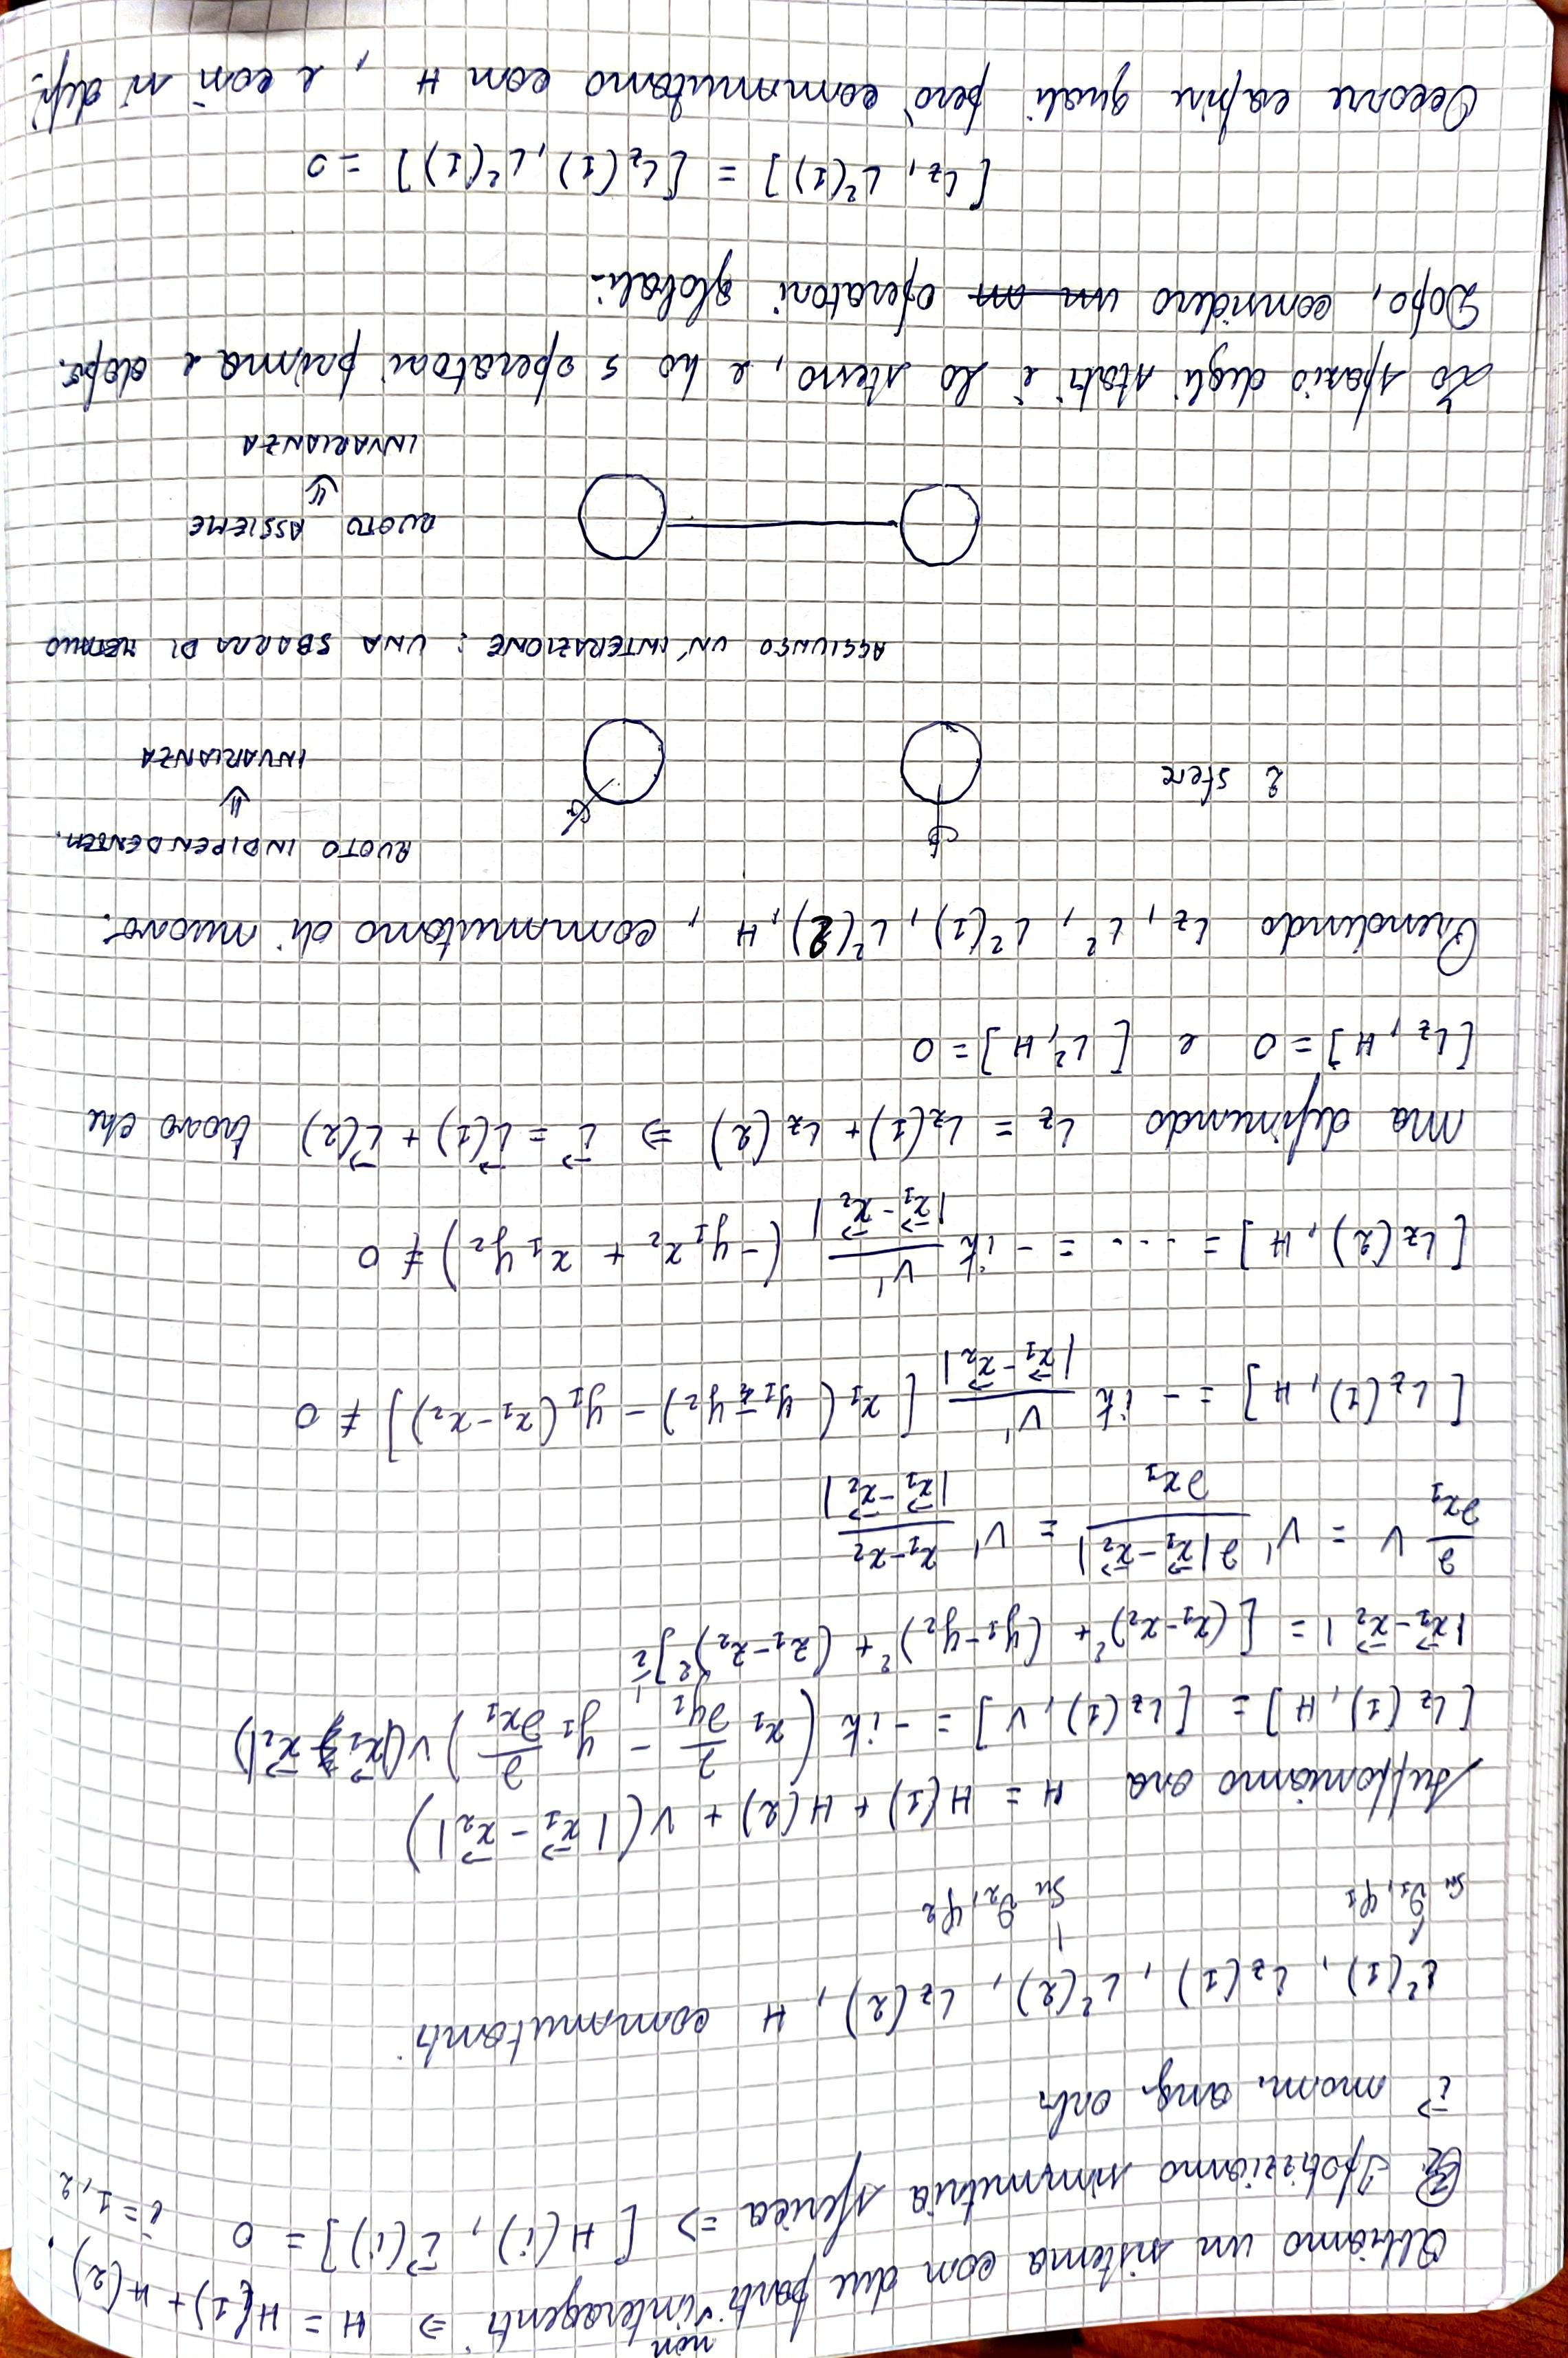 Abbiamo un sistema con due parti non interagenti ⇒ H = H(1) + H(2).
Ipotizziamo simmetria sferica ⇒ [H(i), L⃗(i)] = 0 i=1,2
L⃗ mom. ang. orb.
L²(1), Lz(1), L²(2), Lz(2), H commutanti
su ϑ1, φ1 su ϑ2, φ2
Supponiamo ora H = H(1) + H(2) + V(|x⃗1 - x⃗2|)
[Lz(1), H] = [Lz(1), V] = -iħ (x1 ∂/∂y1 - y1 ∂/∂x1) V(|x⃗1 - x⃗2|)
|x⃗1 - x⃗2| = [(x1-x2)² + (y1-y2)² + (z1-z2)²]^1/2
∂/∂x1 V = V' ∂|x⃗1 - x⃗2|/∂x1 = V' (x1-x2)/|x⃗1 - x⃗2|
[Lz(1), H] = -iħ V'/|x⃗1 - x⃗2| [x1(y1-y2) - y1(x1-x2)] ≠ 0
[Lz(2), H] = .... = -iħ V'/|x⃗1 - x⃗2| (-y1x2 + x1y2) ≠ 0
Ma definendo Lz = Lz(1) + Lz(2) ⇒ L⃗ = L⃗(1) + L⃗(2) trovo che
[Lz, H] = 0 e [L², H] = 0
Prendendo Lz, L², L²(1), L²(2), H, commutano di nuovo.
RUOTO INDIPENDENTEM.
⇓
2 sfere
INVARIANZA
AGGIUNGO UN'INTERAZIONE: UNA SBARRA DI METALLO
RUOTO ASSIEME
⇓
INVARIANZA
Lo spazio degli stati è lo stesso, e ho 5 operatori prima e dopo.
Dopo, considero operatori globali.
[Lz, L²(1)] = [Lz(1), L²(1)] = 0
Occorre capire quali però commutano con H, e così si defi.